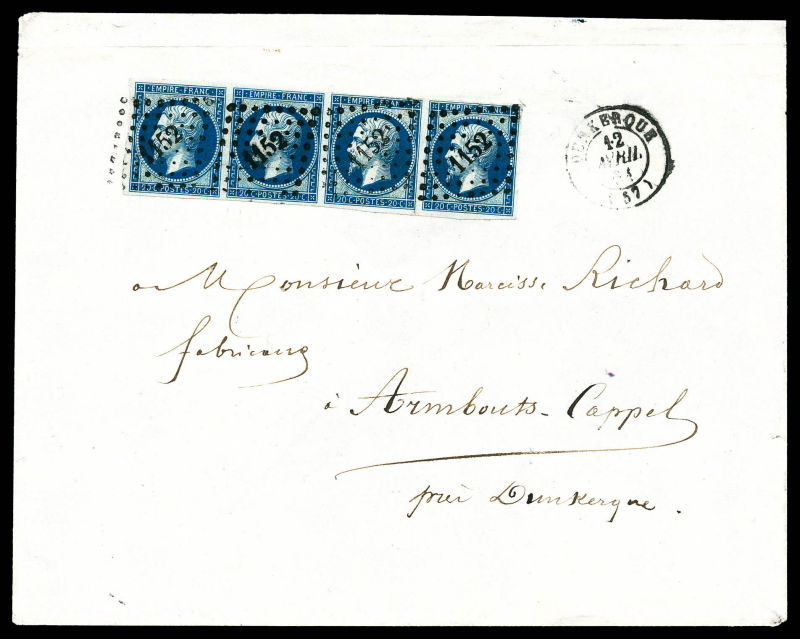 EMPIRE FRANC. EMPIRE FRANC. EMPIRE FRANC. EMPIRE FRANC.
1152 1152 1152 1152
20 C. POSTES. 20 C. 20 C. POSTES. 20 C. 20 C. POSTES. 20 C. 20 C. POSTES. 20 C.
DUNKERQUE
12
AVRIL
(57)
a Monsieur Narcisse Richard
fabricant
à Armbouts-Cappel
près Dunkerque.